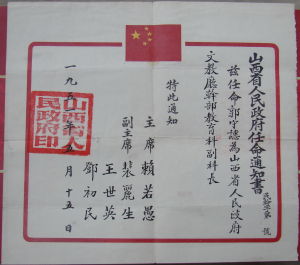 山西省人民政府任命通知書
號
茲任命郭守認為山西省人民政府
文教廳幹部教育科副科長
特此通知
主席 賴若愚
副主席 裴麗生
王世英
鄧初民
一九五 年 月十五日
山西省人
民政府印